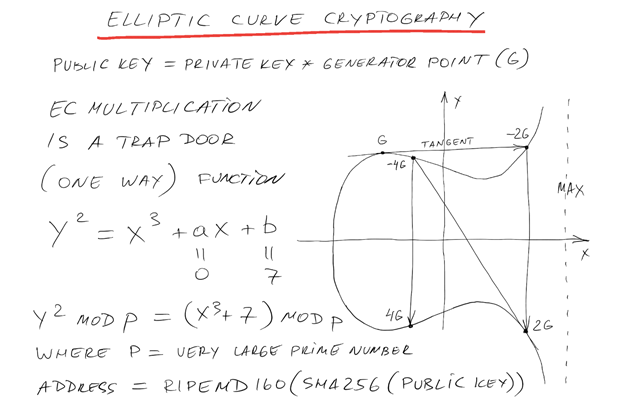 ELLIPTIC CURVE CRYPTOGRAPHY
PUBLIC KEY = PRIVATE KEY * GENERATOR POINT (G)
EC MULTIPLICATION
IS A TRAP DOOR
(ONE WAY) FUNCTION
Y² = X³ + ax + b
= =
0 7
Y² MOD P = (X³ + 7) MOD P
WHERE P = VERY LARGE PRIME NUMBER
ADDRESS = RIPEMD160(SHA256(PUBLIC KEY))
Y
G TANGENT -2G
-4G
MAX
X
4G 2G